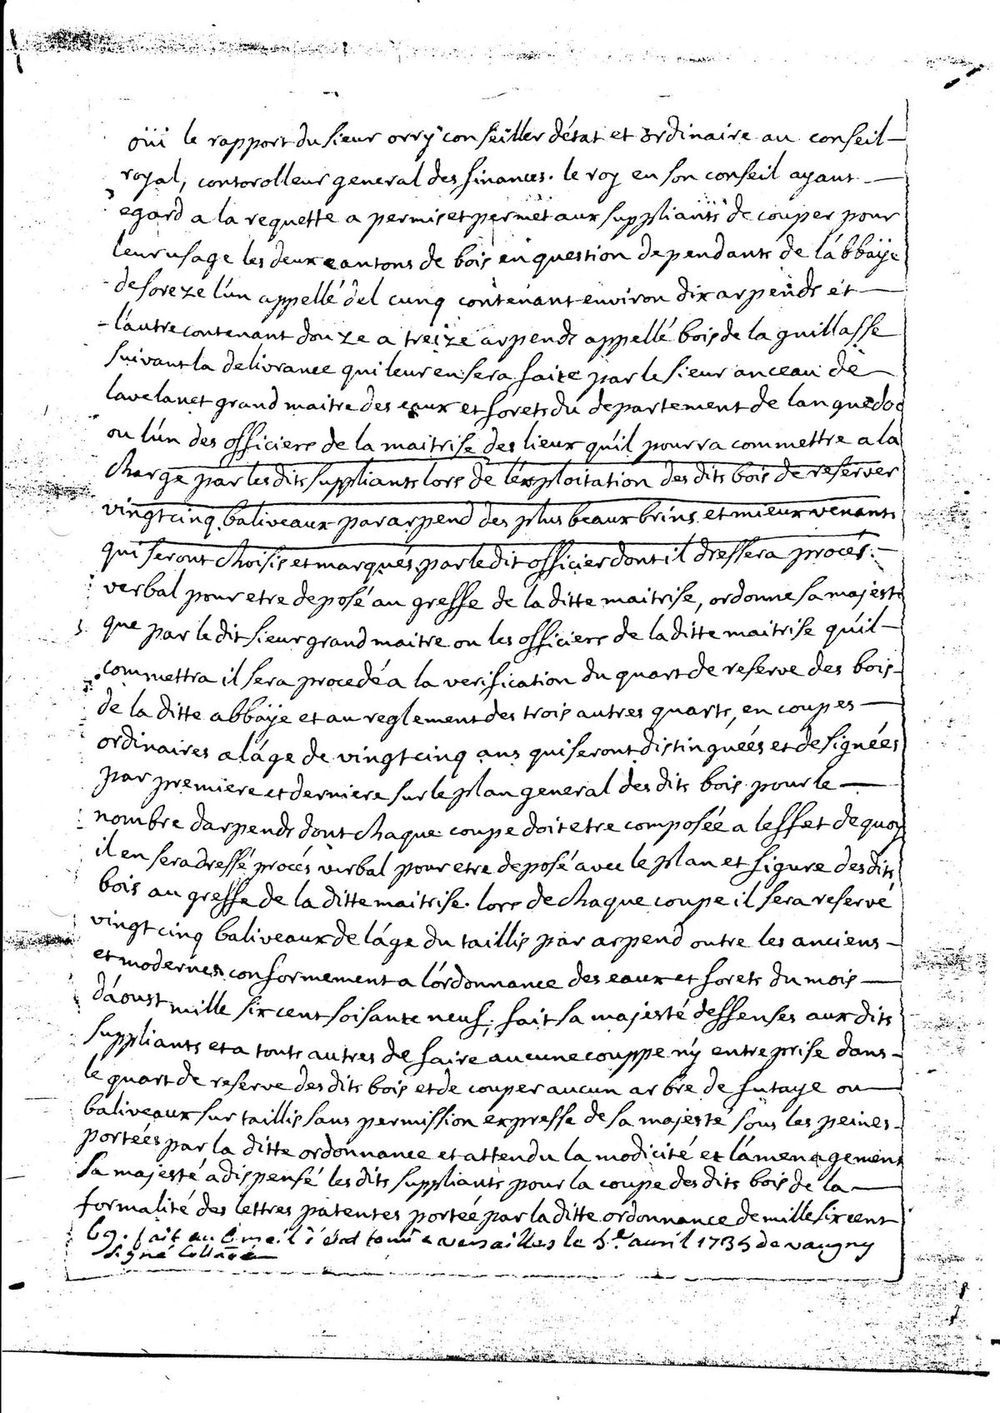 oüi le rapport du sieur orrÿ conseiller d'état et ordinaire au conseil
royal, controrolleur general des finances. le roy en son conseil ayant
egard a la requette a permis et permet aux suppliants de couper pour
leur usage les deux cantons de bois en question dependants de l'abbaÿe
de soreze l'un appellé del cunq contenant environ dix arpends et
l'autre contenant douze a treize arpends appellé bois de la guillasse
suivant la delivrance qui leur en sera faite par le sieur anceau de
lavelanet grand maitre des eaux et forets du departement de languedoc
ou l'un des officiers de la maitrise des lieux qu'il pourra commettre a la
charge par les dits suppliants lors de l'exploitation des dits bois de reserver
vingt cinq baliveaux par arpend des plus beaux brins et mieux venants
qui seront choisis et marqués par le dit officier dont il dressera procés
verbal pour etre deposé au greffe de la ditte maitrise, ordonne sa majesté
que par le dit sieur grand maitre ou les officiers de la ditte maitrise qu'il
commettra il sera procedé a la verification du quart de reserve des bois
de la ditte abbaÿe et au reglement des trois autres quarts, en coupes
ordinaires a l'áge de vingt cinq ans qui seront distinguées et designées
par premiere et derniere sur le plan general des dits bois pour le
nombre d'arpends dont chaque coupe doit etre composée a l'effet de quoy
il en sera dressé procés verbal pour etre deposé avec le plan et figure des dits
bois au greffe de la ditte maitrise. lors de chaque coupe il sera reservé
vingt cinq baliveaux de l'áge du taillis par arpend outre les anciens
et modernes conformement a l'ordonnance des eaux et forets du mois
d'áoust mille six cent soisante neuf; fait sa majesté deffenses aux dits
suppliants et a touts autres de faire aucune couppe n'y entreprise dans
le quart de reserve des dits bois et de couper aucun arbre de futaye ou
baliveaux sur taillis sans permission expresse de sa majesté sous les peines
portées par la ditte ordonnance et attendu la modicité et l'ámenagement
sa majesté a dispensé les dits suppliants pour la coupe des dits bois de la
formalité des lettres patentes portée par la ditte ordonnance de mille six cent
69. fait au Conseil d'état tenu a versailles le 5e avril 1735 de vougny
signé Collationé